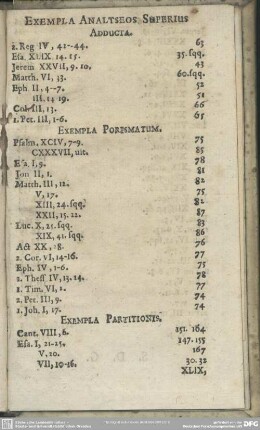 EXEMPLA ANALYSEOS SUPERIUS
ADDUCTA.
2. Reg IV, 41--44. 63
Esa. XLIX. 14. 15. 35. sqq.
Jerem XXVII, 9. 10. 43
Matth. VI, 33. 60. sqq.
Eph II, 4--7. 52
III, 14 19. 51
III, 13. 66
1. Pet. III, 1-6. 65
EXEMPLA PORISMATUM.
Psalm. XCIV, 7-9. 75
CXXXVII, ult. 85
Esa, I, 9. 78
Jon II, 1. 81
Matth. III, 12. 82
V, 17. 75
XIII, 24. sqq. 82
XXII, 15. 22. 87
Luc. X, 25. sqq. 83
XIX, 41. sqq. 86
Act XX, 28. 76
2. Cor. VI, 14-16. 77
Eph. IV, 1-6. 75
2. Thess IV, 13. 14. 78
1. Tim. VI, 2. 77
2. Pet. III, 9. 74
2. Joh. I, 17. 74
EXEMPLA PARTITIONIS.
Cant. VIII, 6. 151. 164
Esa. I, 21-25. 147. 155
V, 20. 167
VII, 10-16. 30. 32
XLIX,